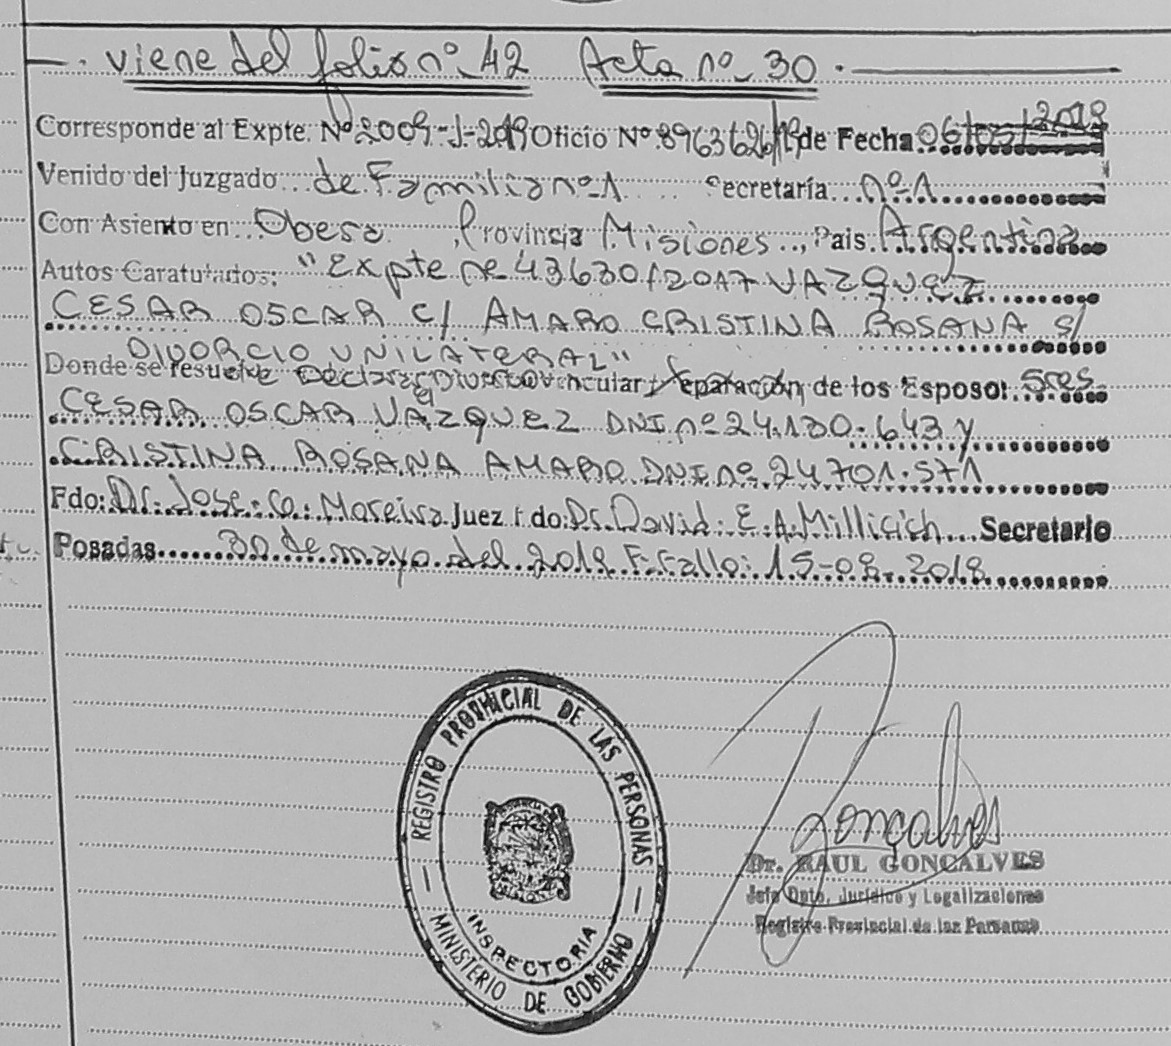 . viene del folio nº 42 Acta nº 30.
Corresponde al Expte. Nº 2009-J-2019 Oficio Nº 8963626/19 de Fecha 06/05/2019
Venido del Juzgado de Familia nº 1 Secretaría nº 1
Con Asiento en: Obera, Provincia Misiones, Pais. Argentina
Autos Caratulados: "Expte nº 43630/2017 VAZQUEZ
CESAR OSCAR C/ AMARO CRISTINA ROSANA S/
DIVORCIO UNILATERAL"
Donde se resuelve Declarar el Divorcio Vincular / Separación de los Esposo: Sres
CESAR OSCAR VAZQUEZ DNI nº 24.130.643 y
CRISTINA ROSANA AMARO DNI nº 24701.571
Fdo: Dr. Jose. G. Moreira Juez Fdo: Dr. David. E. A. Millicich Secretario
Posadas 30 de mayo del 2019 F. Fallo: 15-08-2018
REGISTRO PROVINCIAL DE LAS PERSONAS
INSPECTORIA
MINISTERIO DE GOBIERNO
Gonçalves
Dr. RAUL GONCALVES
Jefe Dpto. Jurídico y Legalizaciones
Registro Provincial de las Personas